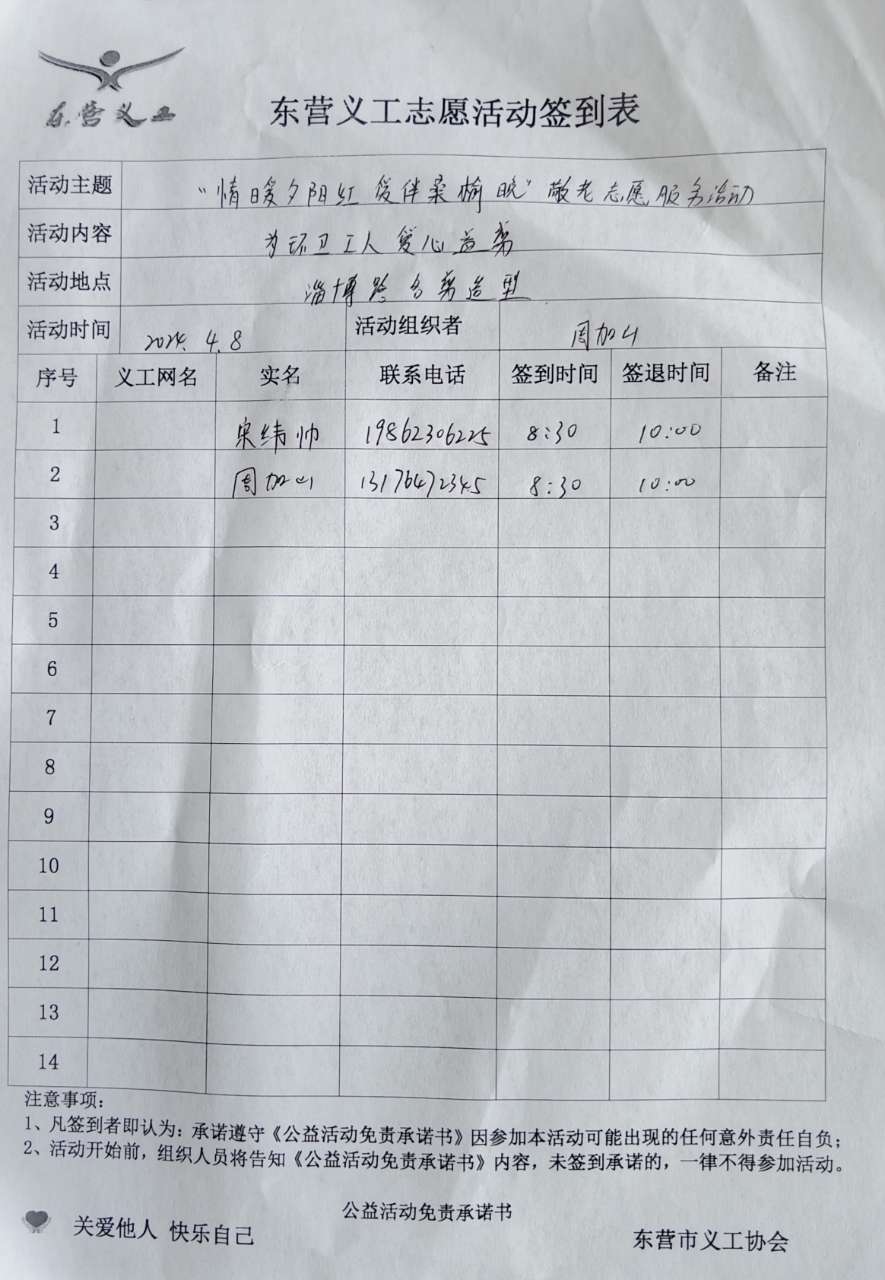 东营义工
东营义工志愿活动签到表
活动主题 “情暖夕阳红 爱伴桑榆晚”敬老志愿服务活动
活动内容 为环卫工人爱心益剪
活动地点 淄博路名剪造型
活动时间 2024.4.8 活动组织者 周加山
序号 义工网名 实名 联系电话 签到时间 签退时间 备注
1 宋纬帅 19862306225 8:30 10:00
2 周加山 13176472345 8:30 10:00
3
4
5
6
7
8
9
10
11
12
13
14
注意事项：
1、凡签到者即认为：承诺遵守《公益活动免责承诺书》因参加本活动可能出现的任何意外责任自负；
2、活动开始前，组织人员将告知《公益活动免责承诺书》内容，未签到承诺的，一律不得参加活动。
公益活动免责承诺书
关爱他人 快乐自己
东营市义工协会